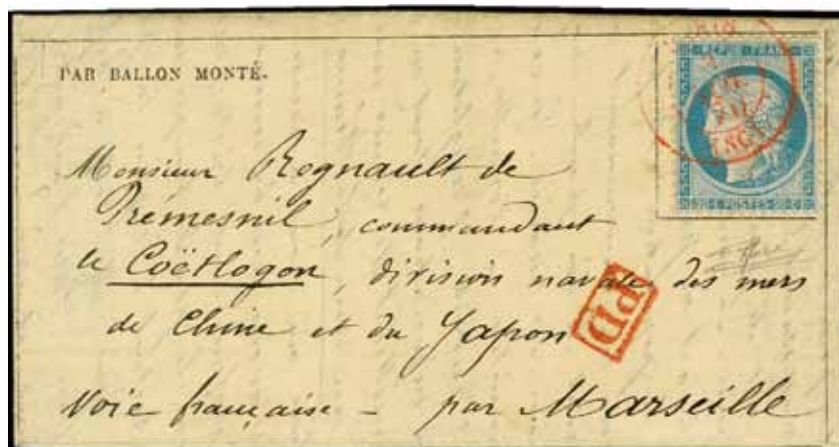 PAR BALLON MONTÉ.
REPUB FRANC
20 c POSTES 20 c
Monsieur Rognault de
Prémesnil, commandant
le Coëtlogon, division navale des mers
de Chine et du Japon
PD
Voie française - par Marseille